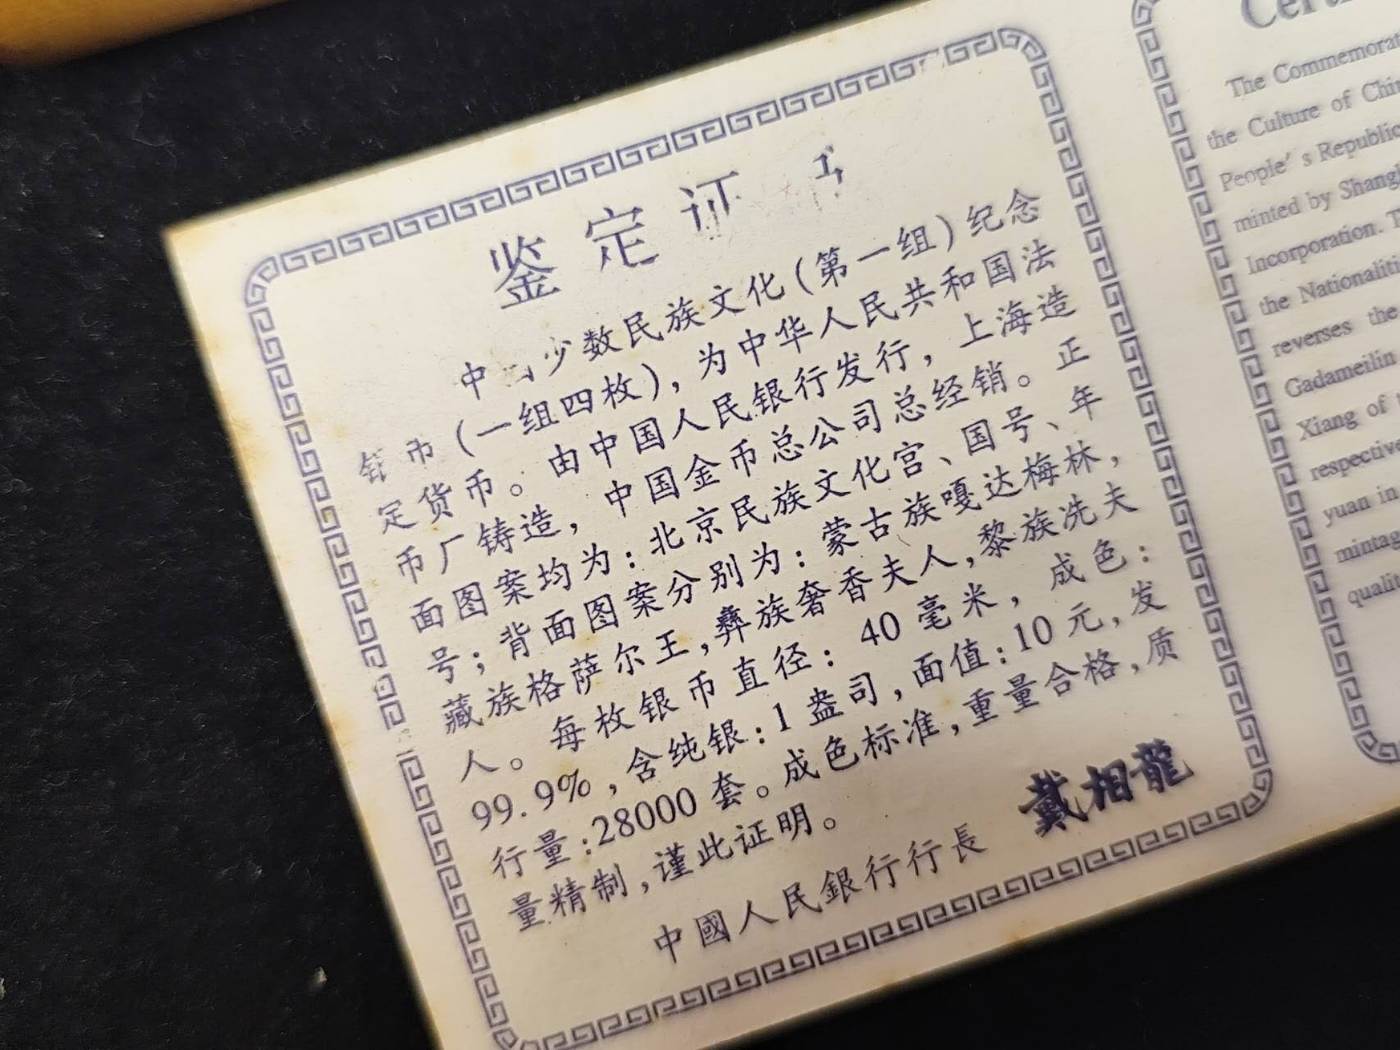 鉴定证
中 少数民族文化(第一组)纪念
币(一组四枚),为中华人民共和国法
定货币。由中国人民银行发行,上海造
币厂铸造,中国金币总公司总经销。正
面图案均为:北京民族文化宫、国号、年
号;背面图案分别为:蒙古族嘎达梅林,
藏族格萨尔王,彝族奢香夫人,黎族冼夫
人。每枚银币直径:40毫米,成色:
99.9%,含纯银:1盎司,面值:10元,发
行量:28000套。成色标准,重量合格,质
量精制,谨此证明。
中國人民銀行行長 戴相龍
The Commemorat
the Culture of Chin
People's Republic
minted by Shangh
Incorporation. T
the Nationaliti
reverses the
Gadameilin
Xiang of t
respective
yuan in
mintag
quali